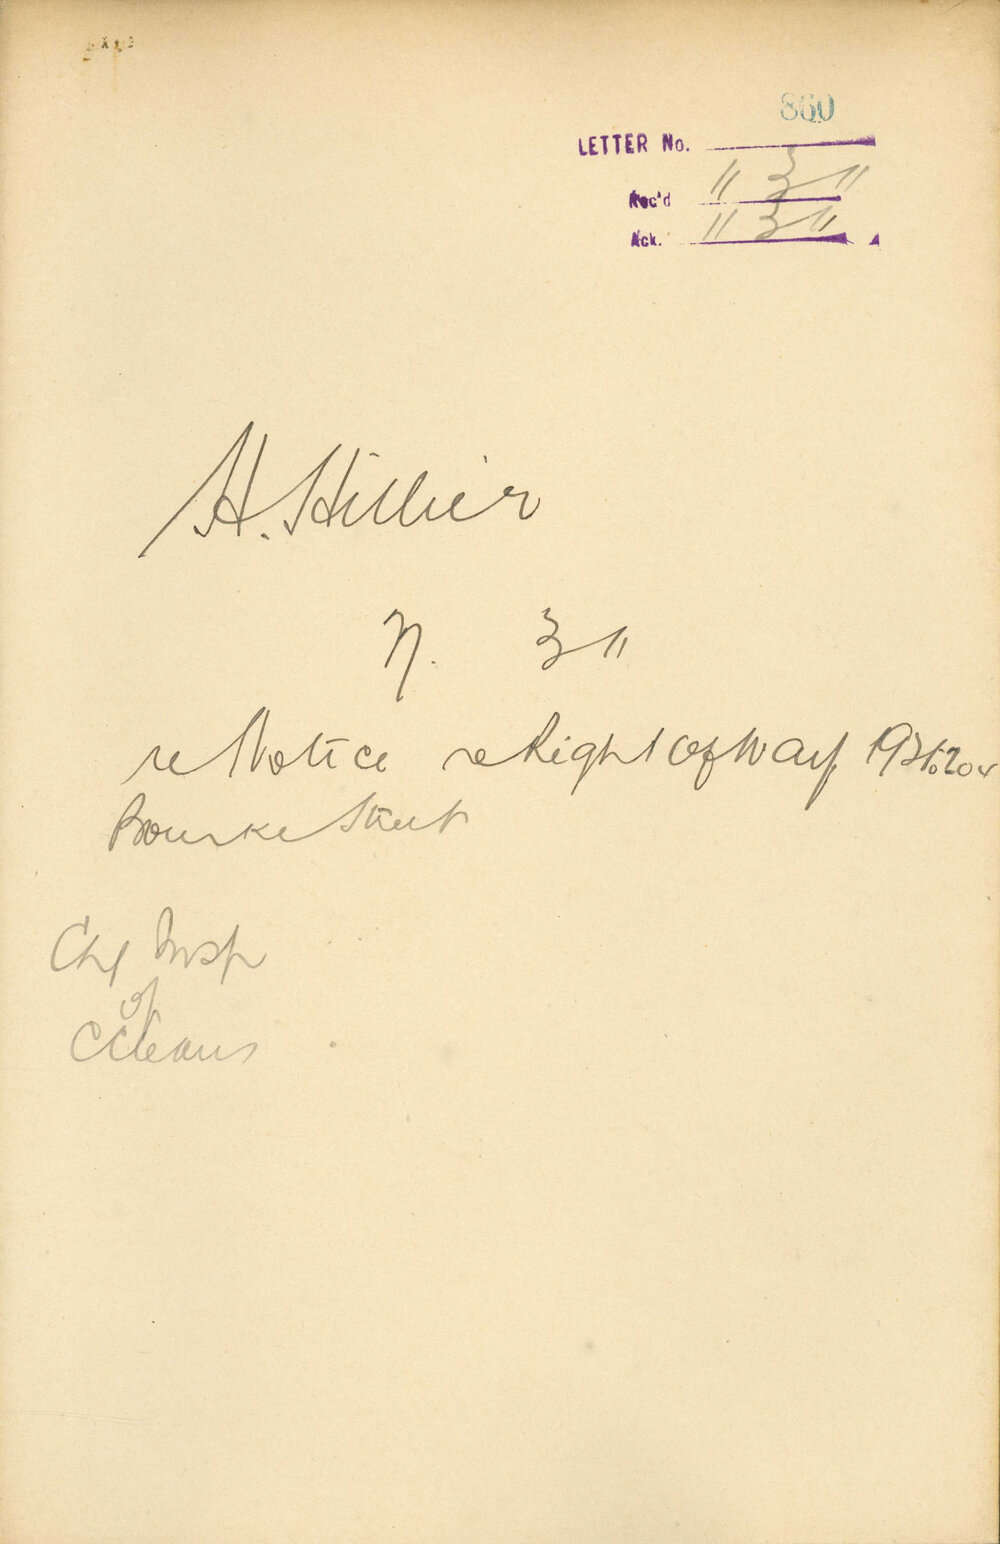 860
LETTER No.
Rec'd 11 3 11
Ack. 11 3 11
H. Hillier
N. 3 11
re Notice re Right of Way
Bourke Street
Chf Insp
of
CCleans